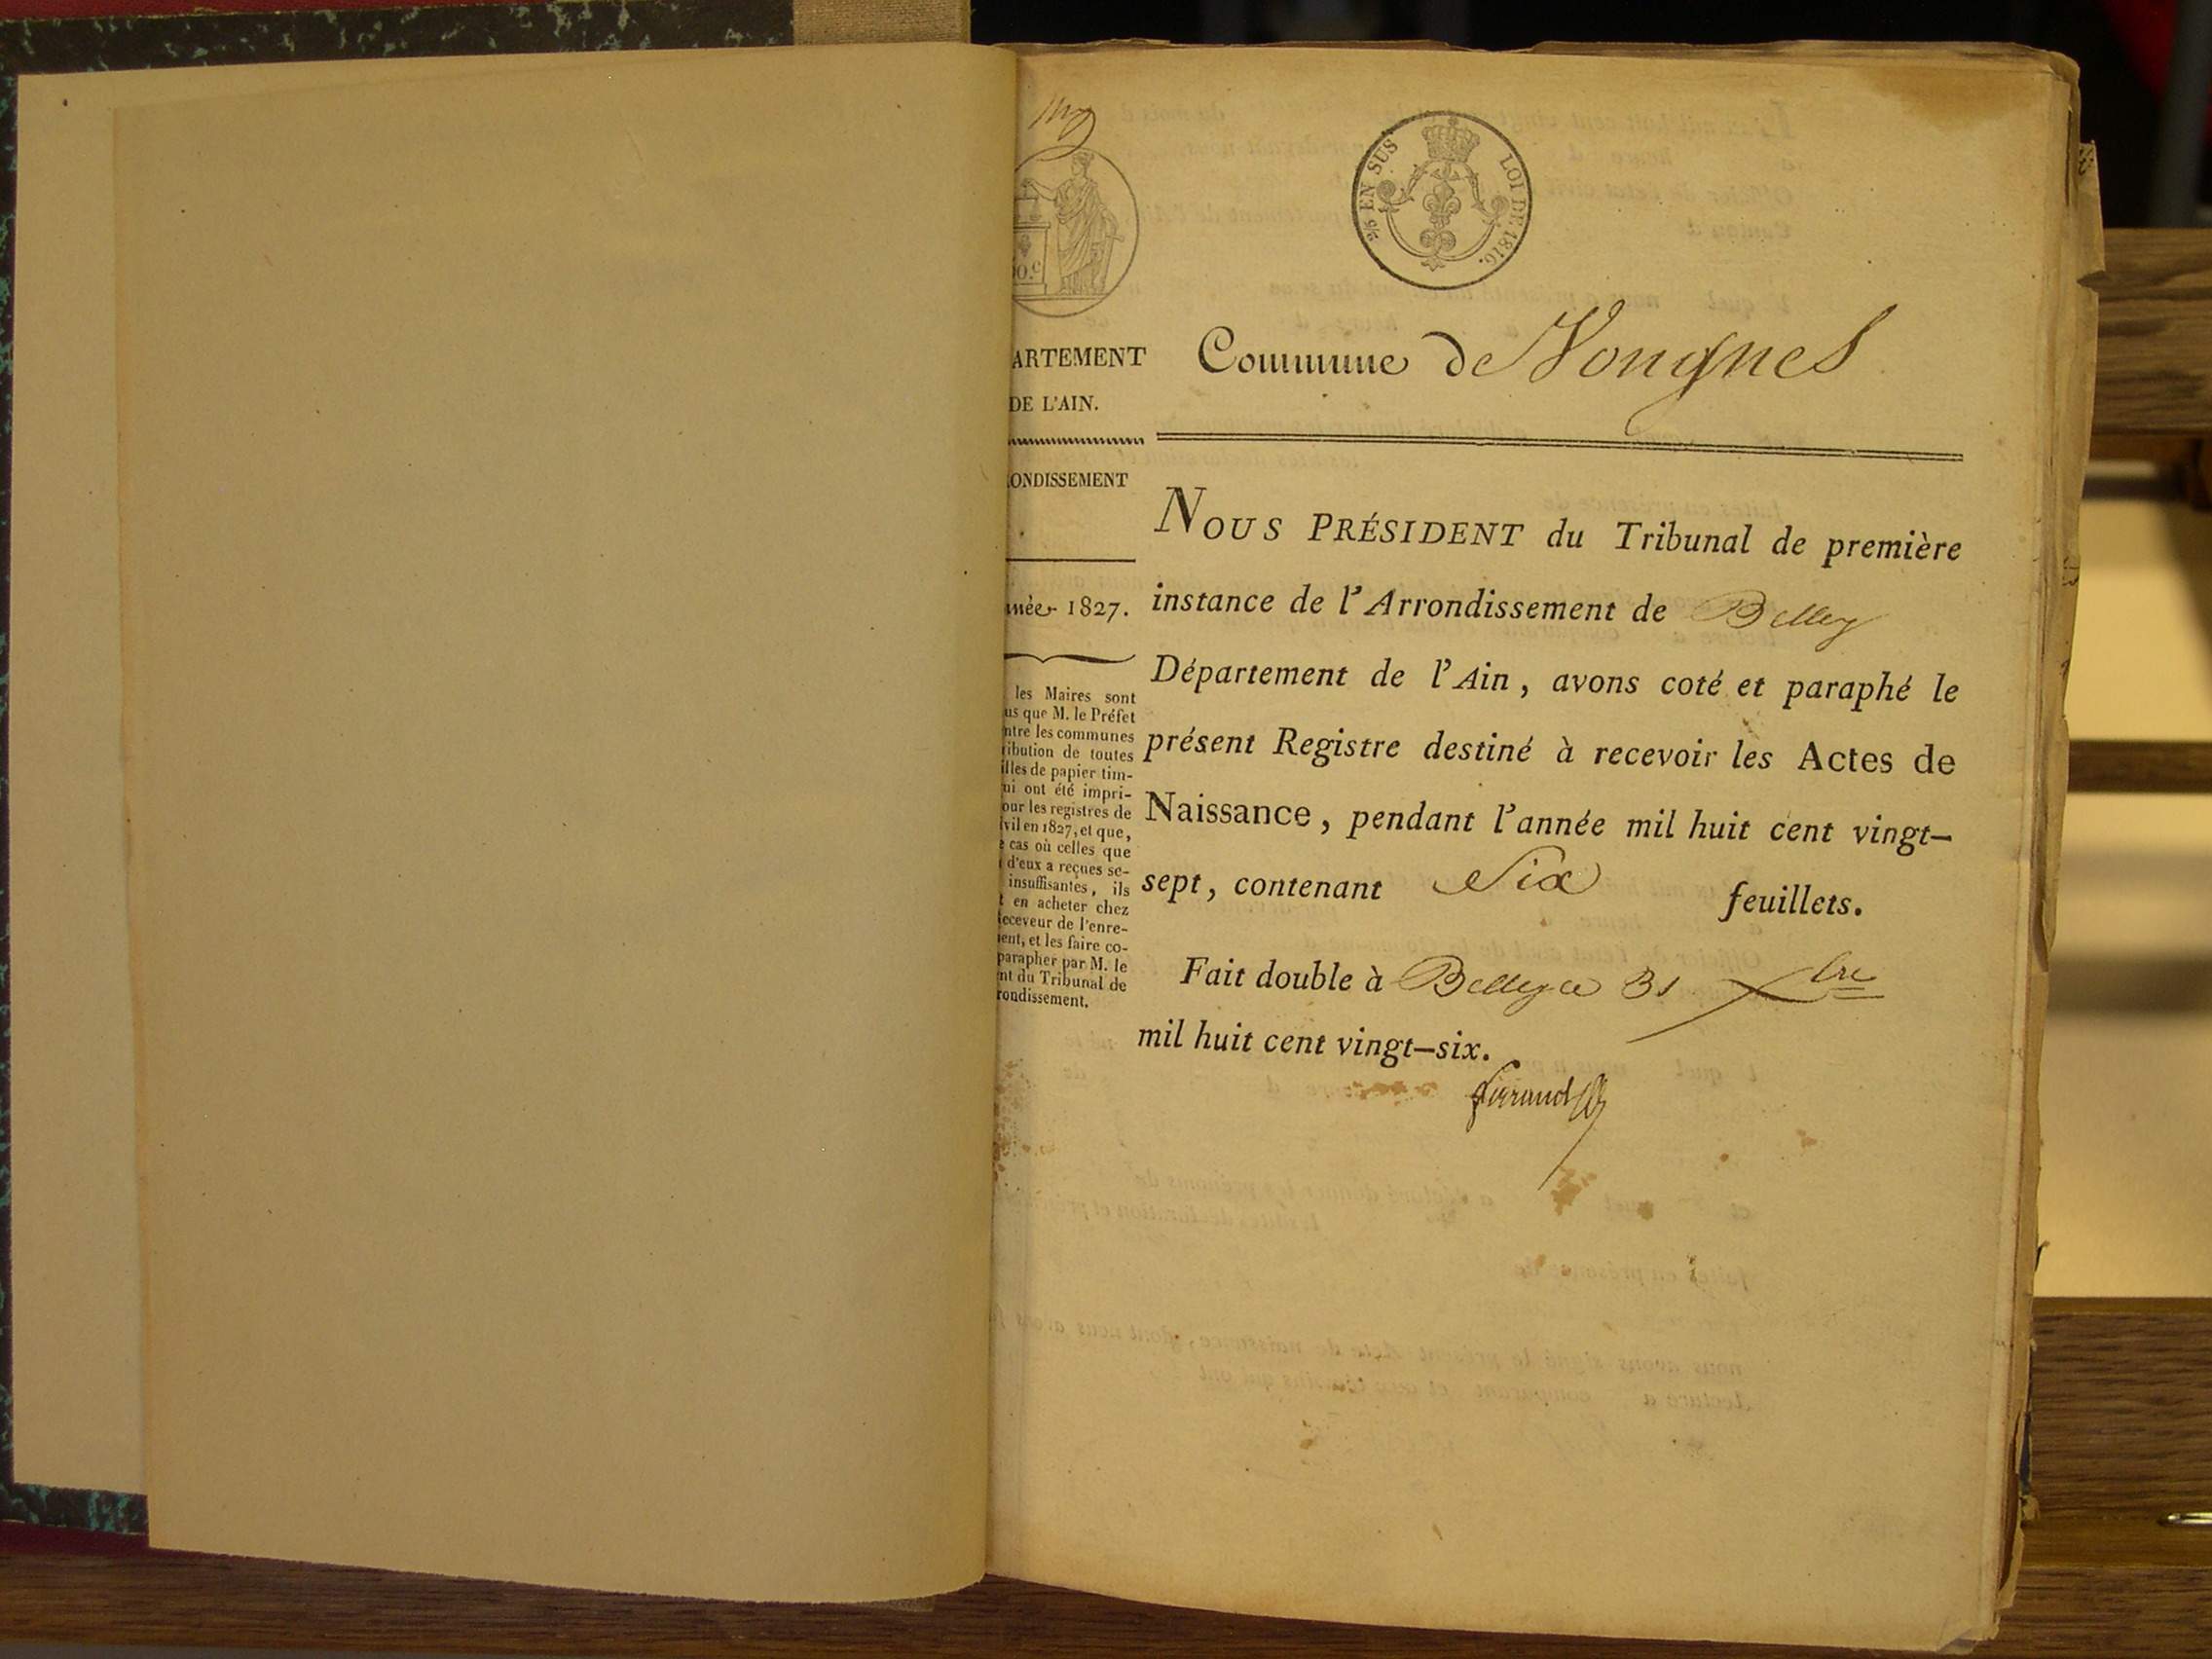 EN SUS LOI DE 1816.
0.c
ARTEMENT
DE L'AIN.
ONDISSEMENT
née 1827.
les Maires sont
us que M. le Préfet
ntre les communes
ribution de toutes
illes de papier tim-
ui ont été impri-
our les registres de
vil en 1827, et que,
cas où celles que
d'eux a reçues se-
insuffisantes, ils
t en acheter chez
eceveur de l'enre-
ent, et les faire co-
parapher par M. le
nt du Tribunal de
rondissement.
Commune de Vongnes
NOUS PRÉSIDENT du Tribunal de première
instance de l'Arrondissement de Belley
Département de l'Ain, avons coté et paraphé le
présent Registre destiné à recevoir les Actes de
Naissance, pendant l'année mil huit cent vingt-
sept, contenant Six feuillets.
Fait double à Belley ce 31 Xbre
mil huit cent vingt-six.